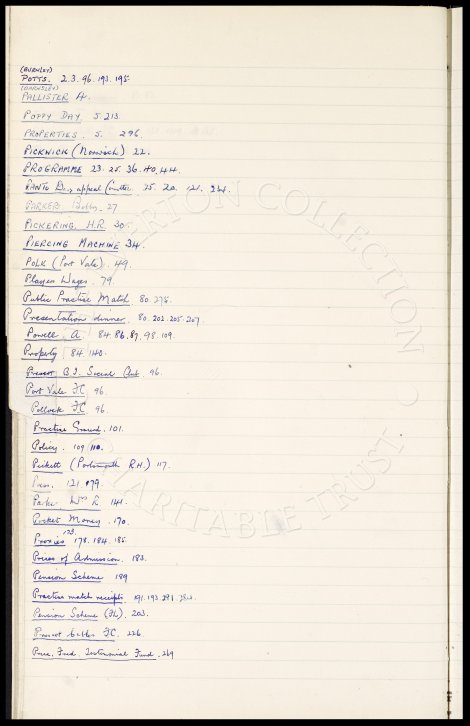 (BURNLEY)
POTTS. 2.3.96.193.195
(BARNSLEY)
PALLISTER 4.
POPPY DAY. 5.213
PROPERTIES. 5. 296.
PICKWICK (Norwich) 22.
PROGRAMME 23.25.36.40.44
appeal 25.20.
PARKER Bobby. 27
PICKERING. H.R. 30
PIERCING MACHINE 34.
POLK (Port Vale). 49.
Players Wages. 79.
Public Practice Match 80.275.
Presentation dinner. 80.202.205.207
Powell. A. 84.86.87.98.109.
Property 84.140.
Prescot B.I. Social Club. 96.
Port Vale FC 96.
Pollock FC 96.
Practice Ground. 101.
Policy. 109.110.
Pickett (Portsmouth R.H.) 117.
Press. 121.179
Parker Wm E 141.
Pocket Money. 170.
Proxies 123 178.184.185.
Prices of Admission. 183.
Pension Scheme 189
Practice match receipts 191.193.281.
Pension Scheme (FL). 203.
Prescot Cables FC. 226.
Price. Fred. Testimonial Fund. 269
EVERTON COLLECTION
CHARITABLE TRUST